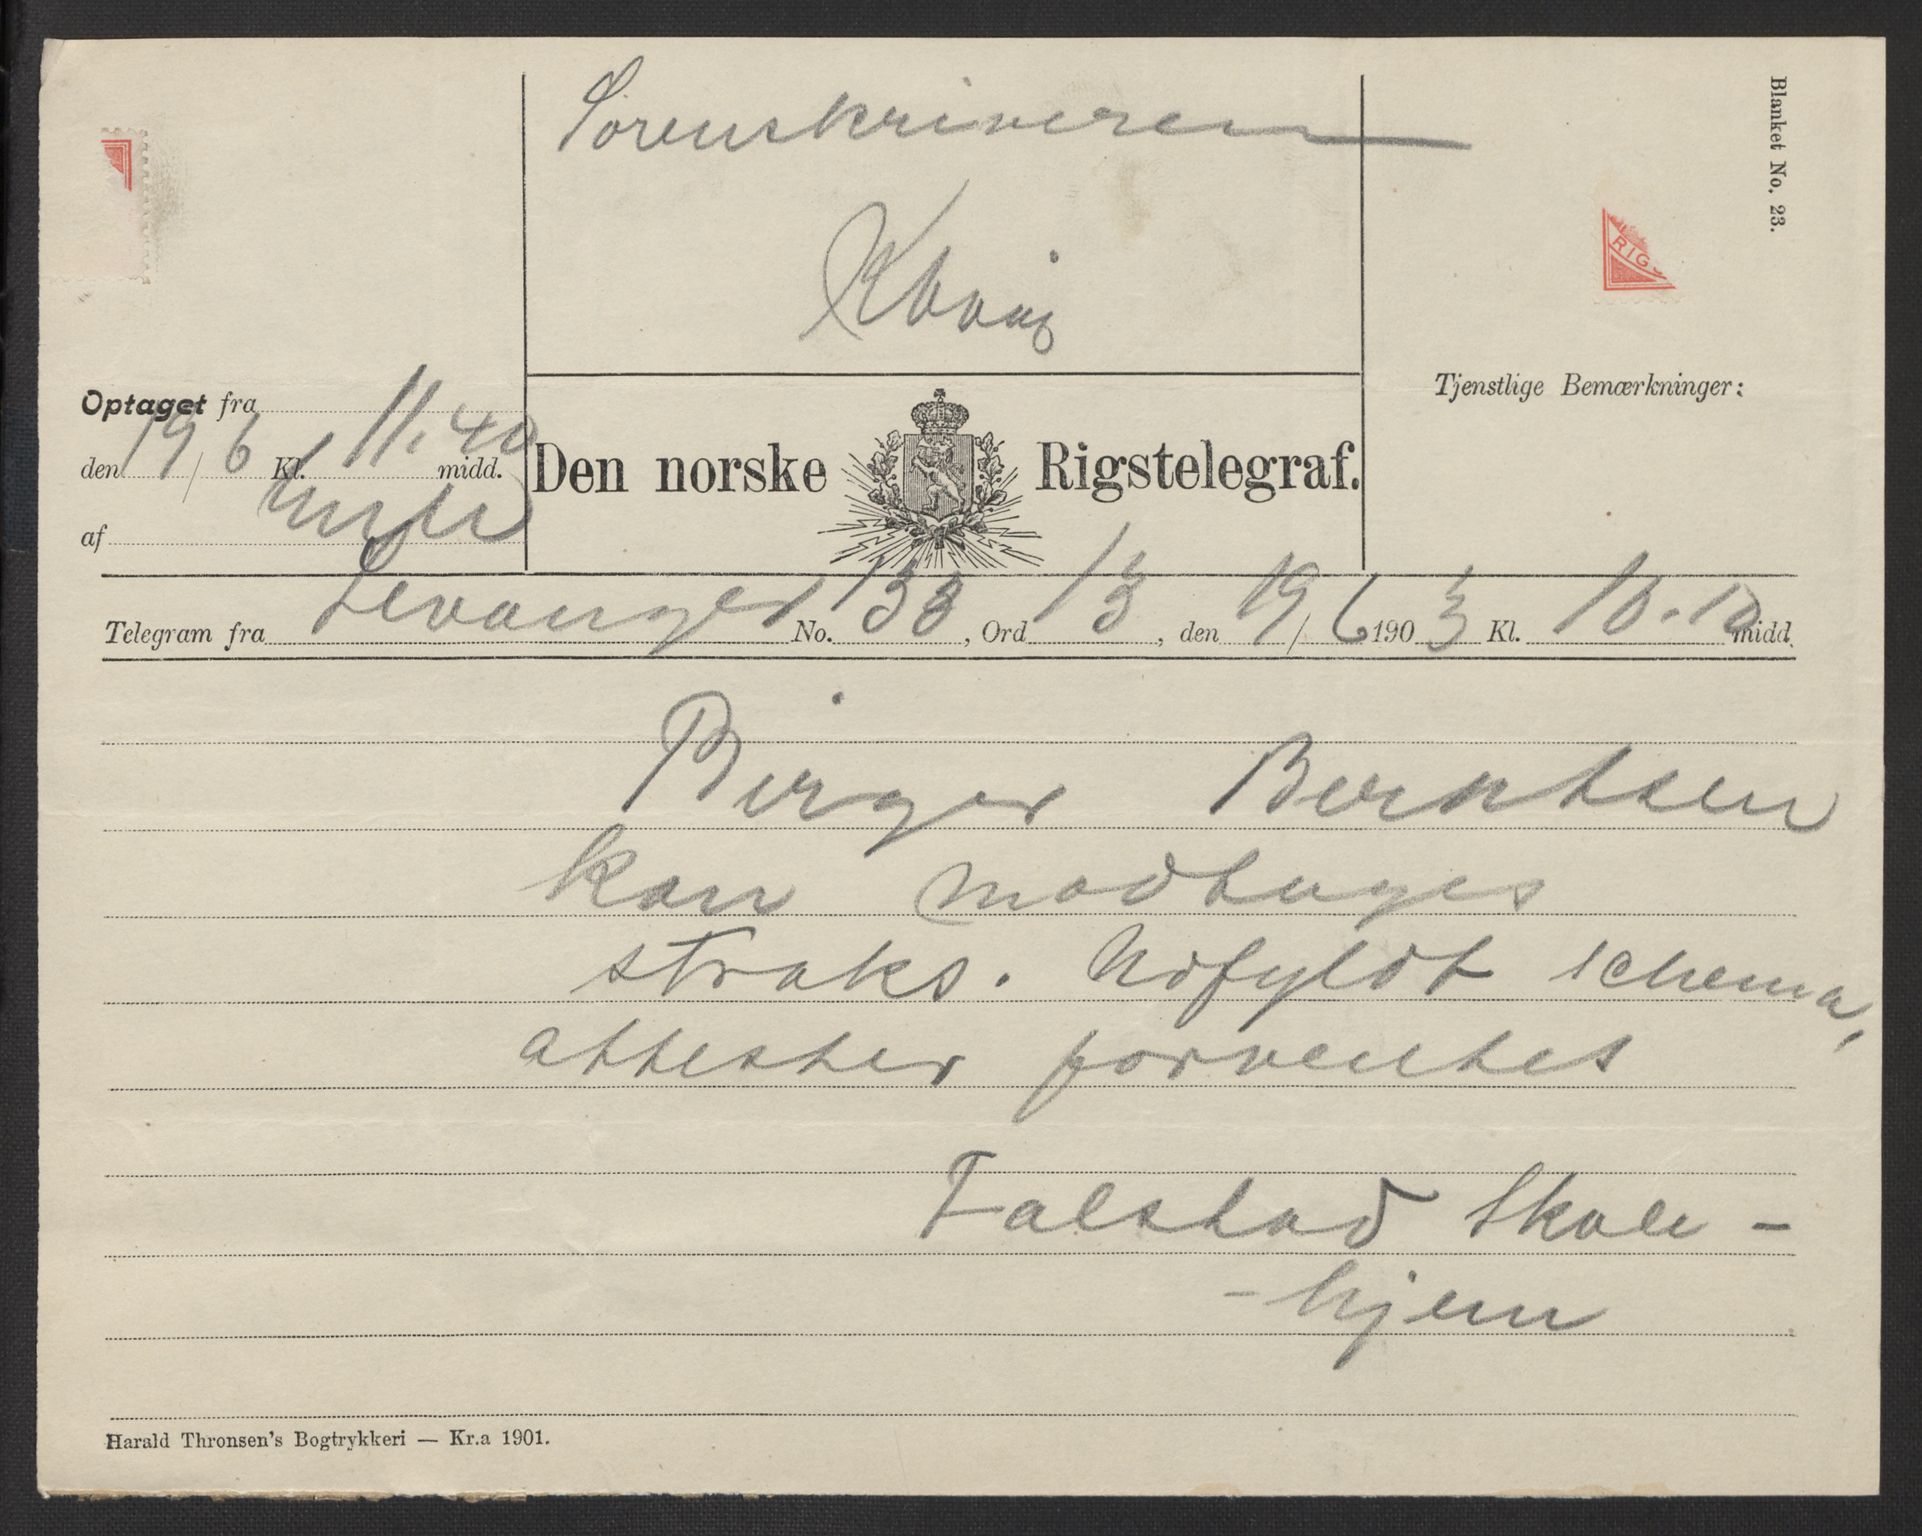 Sorenskriveren
Kbvaag
Blanket No. 23.
RIGS
Optaget fra
den 19/6 Kl. 11.40 midd.
af
Den norske Rigstelegraf.
Tjenstlige Bemærkninger:
Telegram fra Levanger No. 133, Ord 13, den 19/6 1903 Kl. 10.10 midd.
Birger Berntsen
kan modtages
straks. Udfyldt schema,
attester forventes
Falstad Skole -
- hjem
Harald Thronsen's Bogtrykkeri — Kr.a 1901.